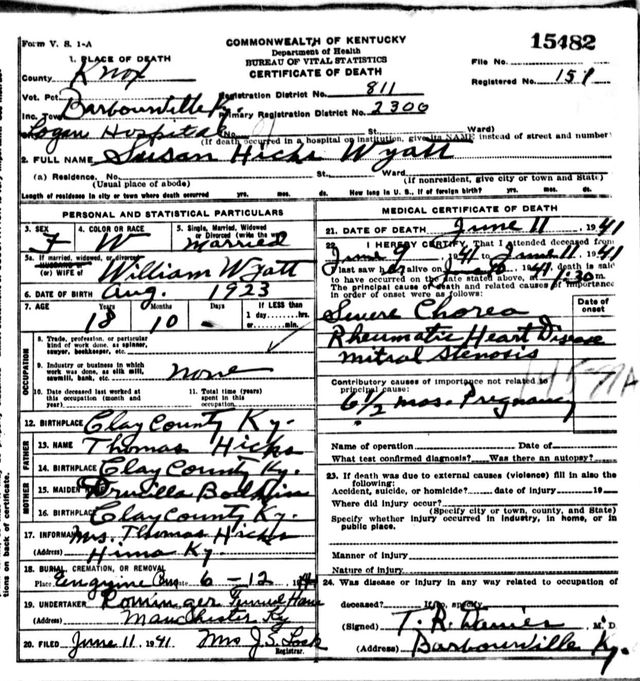 Form V. S. 1-A
COMMONWEALTH OF KENTUCKY
Department of Health
BUREAU OF VITAL STATISTICS
CERTIFICATE OF DEATH
File No. 15482
Registered No. 151
1. PLACE OF DEATH
County Knox
Vot. Pct.
Registration District No. 811
Inc. Town Barbourville Ky.
Primary Registration District No. 2300
Logan Hospital No. St. Ward)
(If death occurred in a hospital or institution, give its NAME instead of street and number)
2. FULL NAME Susan Hicks Wyatt
(a) Residence. No. St., Ward.
(Usual place of abode) (If nonresident, give city or town and State)
Length of residence in city or town where death occurred yrs. mos. ds. How long in U. S., if of foreign birth? yrs. mos. ds.
PERSONAL AND STATISTICAL PARTICULARS
3. SEX F
4. COLOR OR RACE W
5. Single, Married, Widowed or Divorced (write the word) married
5a. If married, widowed, or divorced
(or) WIFE of William Wyatt
6. DATE OF BIRTH Aug. 1923
7. AGE Years 18 Months 10 Days - If LESS than
1 day, hrs.
or min.
OCCUPATION
8. Trade, profession, or particular
kind of work done, as spinner,
sawyer, bookkeeper, etc.
9. Industry or business in which
work was done, as silk mill,
sawmill, bank, etc. none
10. Date deceased last worked at
this occupation (month and
year)
11. Total time (years)
spent in this
occupation
12. BIRTHPLACE Clay County Ky.
FATHER
13. NAME Thomas Hicks
14. BIRTHPLACE Clay County Ky.
MOTHER
15. MAIDEN
16. BIRTHPLACE Clay County Ky.
17. INFORMANT Mrs. Thomas Hicks
(Address) Hima Ky.
18. BURIAL, CREMATION, OR REMOVAL
Place Date 6-12
19. UNDERTAKER Rominger Funeral Home
Manchester Ky
20. FILED June 11, 1941 Mrs J. S.
Registrar.
MEDICAL CERTIFICATE OF DEATH
21. DATE OF DEATH June 11 1941
22. I HEREBY CERTIFY, That I attended deceased from
June 9 1941 to June 11, 1941
I last saw her alive on June 1941, death is said
to have occurred on the date stated above, at 1:30 m.
The principal cause of death and related causes of importance
in order of onset were as follows:
Date of
onset
Severe Chorea
Rheumatic Heart Disease
Mitral Stenosis
Contributory causes of importance not related to
principal cause:
6 1/2 mos. Pregnancy
Name of operation Date of
What test confirmed diagnosis? Was there an autopsy?
23. If death was due to external causes (violence) fill in also the
following:
Accident, suicide, or homicide? date of injury 19
Where did injury occur?
(Specify city or town, county, and State)
Specify whether injury occurred in industry, in home, or in
public place.
Manner of injury
Nature of injury
24. Was disease or injury in any way related to occupation of
deceased? If so, specify
(Signed) T. R. Davies M. D.
(Address) Barbourville Ky.
tions on back of certificate.